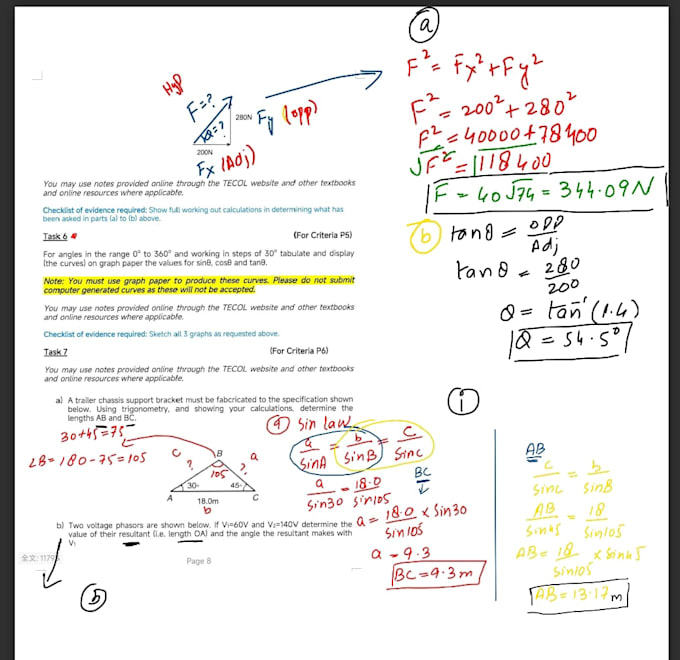 (a)
F² = Fx² + Fy²
F² = 200² + 280²
F² = 40000 + 78400
√F² = √118400
F = 40√74 = 344.09N
Hyp
F=?
Q=?
280N
Fy (opp)
200N
Fx (Adj)
(b) tanθ = opp/Adj
tanθ = 280/200
Q = tan⁻¹(1.4)
Q = 54.5°
You may use notes provided online through the TECOL website and other textbooks
and online resources where applicable.
Checklist of evidence required: Show full working out calculations in determining what has
been asked in parts (a) to (b) above.
Task 6 (For Criteria P5)
For angles in the range 0° to 360° and working in steps of 30° tabulate and display
(the curves) on graph paper the values for sinθ, cosθ and tanθ.
Note: You must use graph paper to produce these curves. Please do not submit
computer generated curves as these will not be accepted.
You may use notes provided online through the TECOL website and other textbooks
and online resources where applicable.
Checklist of evidence required: Sketch all 3 graphs as requested above.
Task 7 (For Criteria P6)
You may use notes provided online through the TECOL website and other textbooks
and online resources where applicable.
a) A trailer chassis support bracket must be fabcricated to the specification shown
below. Using trigonometry, and showing your calculations, determine the
lengths AB and BC.
30+45=75
∠B = 180-75=105
c
B
a
?
105
?
30◦
45◦
A
18.0m
C
b
(a) sin law
a/sinA = b/sinB = c/sinC
a/sin30 = 18.0/sin105
BC
a = 18.0/sin105 × sin30
a = 9.3
BC = 9.3m
(i)
AB
c/sinc = b/sinB
AB/sin45 = 18/sin105
AB = 18/sin105 × sin45
AB = 13.17m
b) Two voltage phasors are shown below. If V₁=60V and V₂=140V determine the
value of their resultant (i.e. length OA) and the angle the resultant makes with
V₁
Page 8
(b)